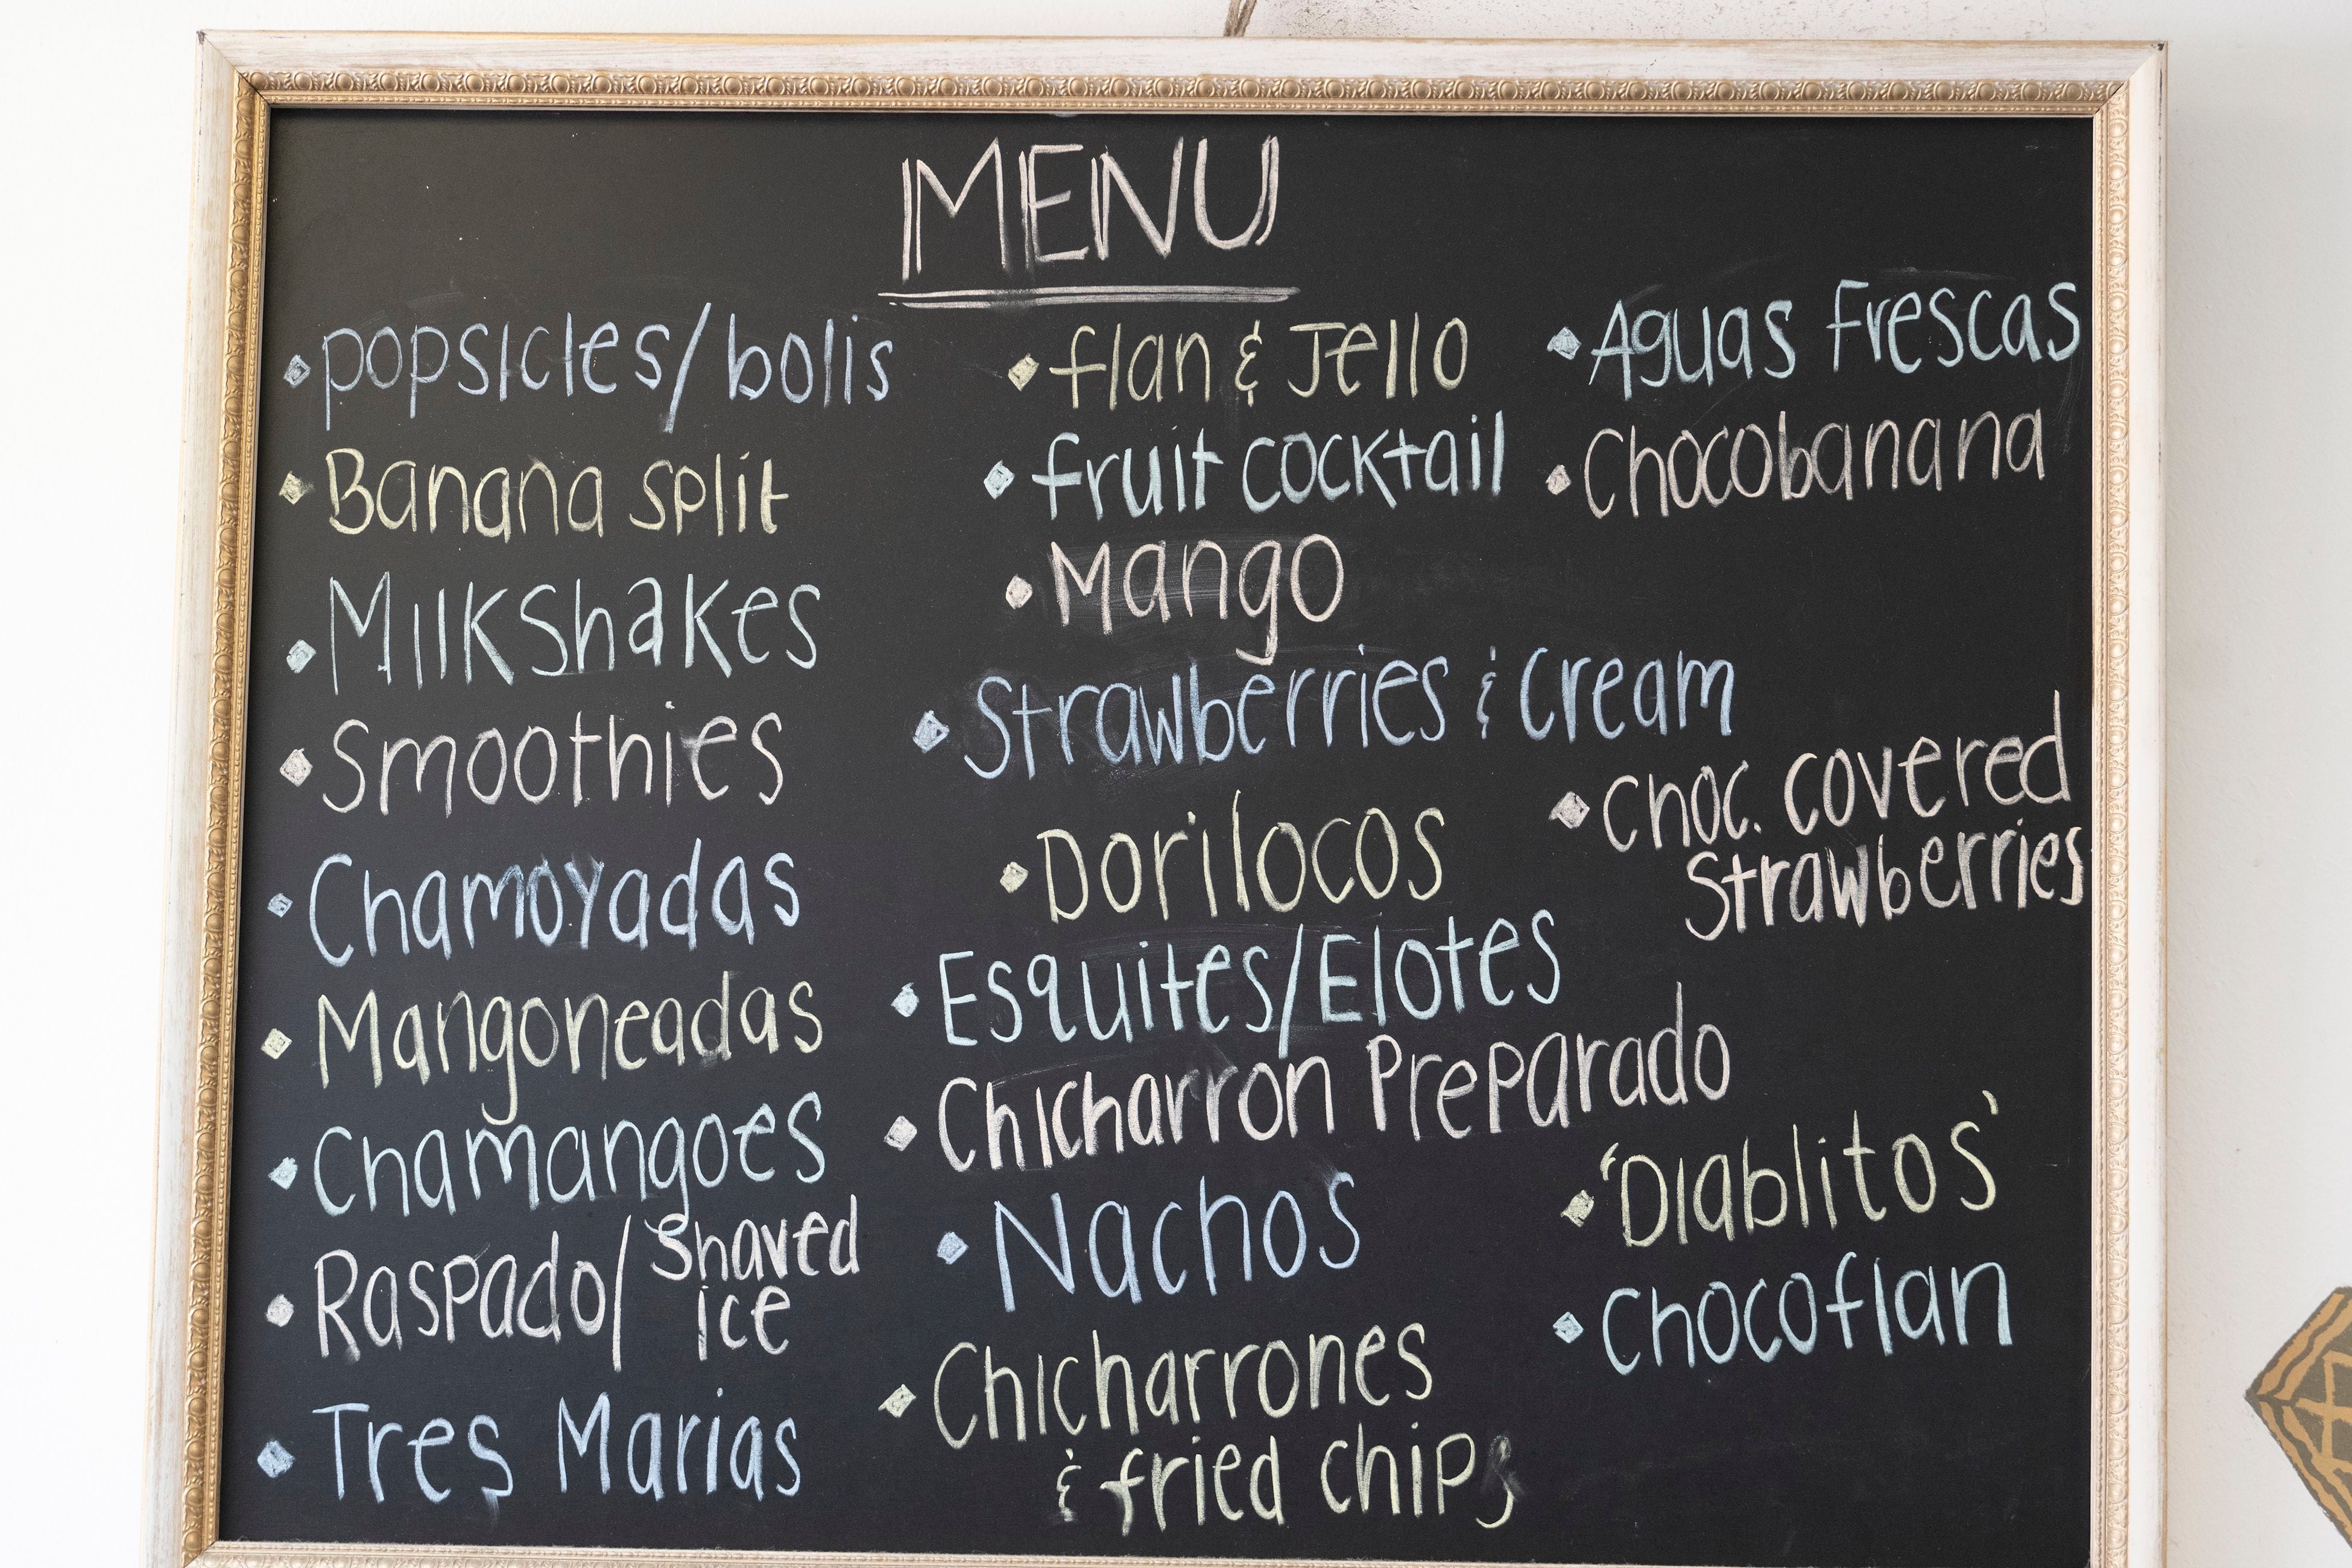 MENU
• popsicles/bolis
• Banana split
• Milkshakes
• Smoothies
• Chamoyadas
• Mangoneadas
• Chamangoes
• Raspado/Shaved
ice
• Tres Marias
• flan & Jello
• fruit cocktail
• Mango
• Strawberries & Cream
• Dorilocos
• Esquites/Elotes
• Chicharron Preparado
• Nachos
• Chicharrones
& fried chips
• Aguas Frescas
• Chocobanana
• Choc. covered
Strawberries
• 'Diablitos'
• Chocoflan